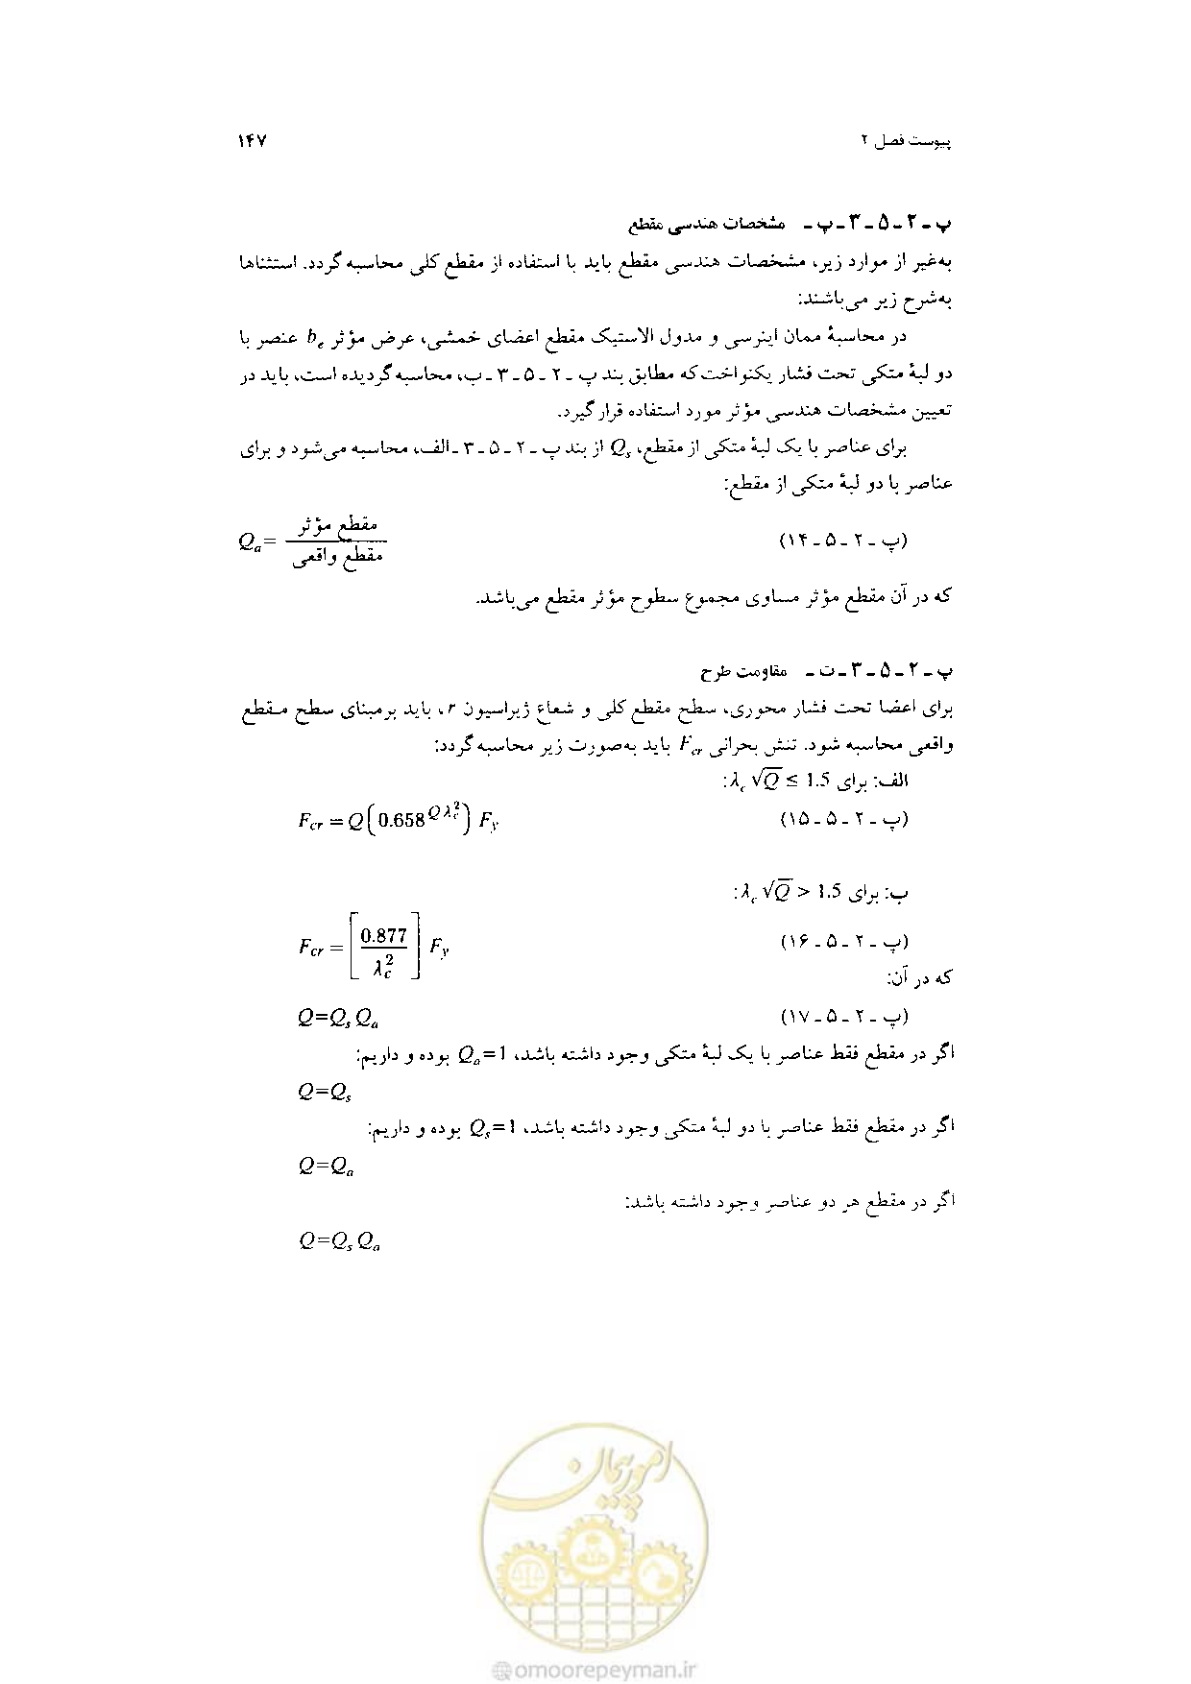 پیوست فصل ۲ ۱۴۷
پ ـ ۲ ـ ۵ ـ ۳ ـ پ ـ مشخصات هندسی مقطع
به‌غیر از موارد زیر، مشخصات هندسی مقطع باید با استفاده از مقطع کلی محاسبه گردد. استثناها
به‌شرح زیر می‌باشند:
در محاسبهٔ ممان اینرسی و مدول الاستیک مقطع اعضای خمشی، عرض مؤثر be عنصر با
دو لبهٔ متکی تحت فشار یکنواخت که مطابق بند پ ـ ۲ ـ ۵ ـ ۳ ـ ب، محاسبه گردیده است، باید در
تعیین مشخصات هندسی مؤثر مورد استفاده قرار گیرد.
برای عناصر با یک لبهٔ متکی از مقطع، Qs از بند پ ـ ۲ ـ ۵ ـ ۳ ـ الف، محاسبه می‌شود و برای
عناصر با دو لبهٔ متکی از مقطع:
(پ ـ ۲ ـ ۵ ـ ۱۴) Qa = مقطع مؤثر / مقطع واقعی
که در آن مقطع مؤثر مساوی مجموع سطوح مؤثر مقطع می‌باشد.
پ ـ ۲ ـ ۵ ـ ۳ ـ ت ـ مقاومت طرح
برای اعضا تحت فشار محوری، سطح مقطع کلی و شعاع ژیراسیون r، باید برمبنای سطح مقطع
واقعی محاسبه شود. تنش بحرانی Fcr باید به‌صورت زیر محاسبه گردد:
الف: برای λc √Q ≤ 1.5:
(پ ـ ۲ ـ ۵ ـ ۱۵) Fcr = Q(0.658^(Qλc²)) Fy
ب: برای λc √Q > 1.5:
(پ ـ ۲ ـ ۵ ـ ۱۶) Fcr = [0.877 / λc²] Fy
که در آن:
(پ ـ ۲ ـ ۵ ـ ۱۷) Q=Qs Qa
اگر در مقطع فقط عناصر با یک لبهٔ متکی وجود داشته باشد، Qa=1 بوده و داریم:
Q=Qs
اگر در مقطع فقط عناصر با دو لبهٔ متکی وجود داشته باشد، Qs=1 بوده و داریم:
Q=Qa
اگر در مقطع هر دو عناصر وجود داشته باشد:
Q=Qs Qa
امور پیمان
@omoorepeyman.ir